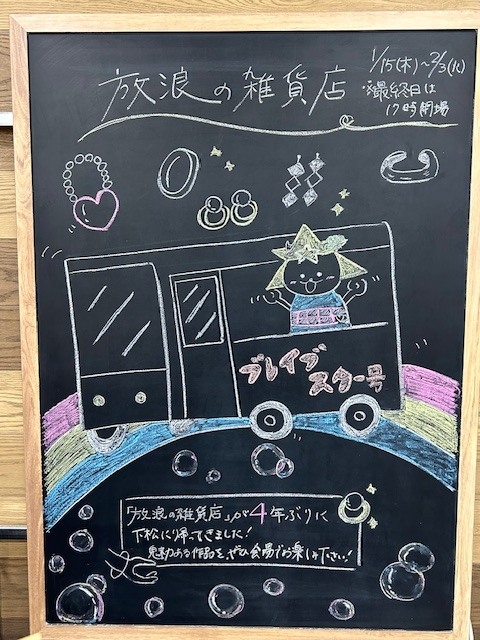 放浪の雑貨店
1/15(木)～2/3(火)
※最終日は
17時閉場
ブレイブ
スター号
「放浪の雑貨店」が4年ぶりに
下松に帰ってきました!
魅力ある作品を、ぜひ会場でお楽しみ下さい!